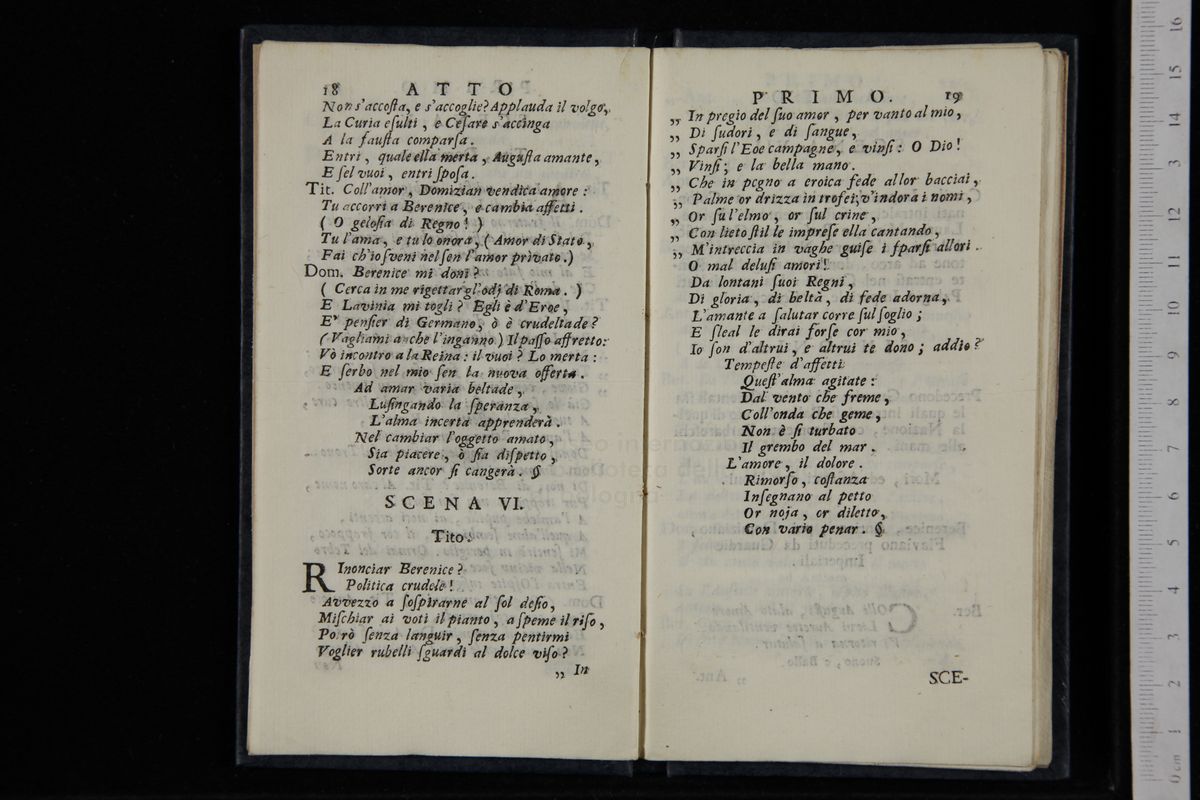 18 ATTO
Non s'accoſta, e s'accoglie? Applauda il volgo,
La Curia eſulti, e Ceſare s'accinga
A la fauſta comparſa.
Entri, quale ella merta, Auguſta amante,
E ſel vuoi, entri ſpoſa.
Tit. Coll'amor, Domizian vendica amore:
Tu accorri a Berenice, e cambia affetti.
( O geloſia di Regno! )
Tu l'ama, e tu lo onora, (Amor di Stato,
Fai ch'io ſveni nel ſen l'amor privato.)
Dom. Berenice mi doni?
( Cerca in me rigettar gl'odj di Roma. )
E Lavinia mi togli? Egli è d'Eroe,
E' penſier di Germano, ò è crudeltade?
(Vagliami anche l'inganno) Il paſſo affretto:
Vò incontro a la Reina: il vuoi? Lo merta:
E ſerbo nel mio ſen la nuova offerta.
Ad amar varia beltade,
Luſingando la ſperanza,
L'alma incerta apprenderà.
Nel cambiar l'oggetto amato,
Sia piacere, ò ſia diſpetto,
Sorte ancor ſi cangerà. §
SCENA VI.
Tito.
RInonciar Berenice?
Politica crudele!
Avvezzo a ſoſpirarne al ſol deſio,
Miſchiar ai voti il pianto, a ſpeme il riſo,
Potrò ſenza languir, ſenza pentirmi
Voglier rubelli ſguardi al dolce viſo?
,, In
PRIMO. 19
,, In pregio del ſuo amor, per vanto al mio,
,, Di ſudori, e di ſangue,
,, Sparſi l'Eoe campagne, e vinſi: O Dio!
,, Vinſi; e la bella mano.
,, Che in pegno a eroica fede allor bacciai,
,, Palme or drizza in trofei; v'indora i nomi,
,, Or ſu l'elmo, or ſul crine,
,, Con lieto ſtil le impreſe ella cantando,
,, M'intreccia in vaghe guiſe i ſparſi allori.
O mal deluſi amori!
Da lontani ſuoi Regni,
Di gloria, di beltà, di fede adorna,
L'amante a ſalutar corre ſul ſoglio;
E ſleal le dirai forſe cor mio,
Io ſon d'altrui, e altrui te dono; addio?
Tempeſte d'affetti
Queſt'alma agitate:
Dal vento che freme,
Coll'onda che geme,
Non è ſi turbato
Il grembo del mar.
L'amore, il dolore.
Rimorſo, coſtanza
Inſegnano al petto
Or noja, or diletto,
Con vario penar. §
SCE-